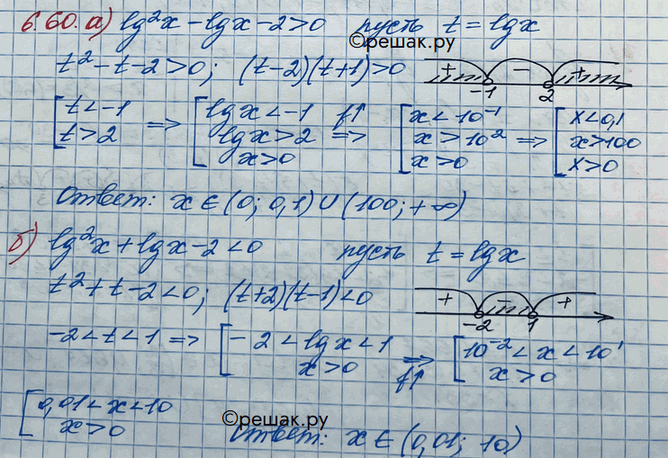 6.60. а) lg²x - lgx - 2 > 0 пусть t = lgx
©решак.ру
t² - t - 2 > 0; (t-2)(t+1) > 0 + - + -1 2
[ t < -1 ⇒ [ lgx < -1 f↑ [ x < 10⁻¹ [ x < 0,1
t > 2 lgx > 2 ⇒ x > 10² ⇒ x > 100
x > 0 x > 0 x > 0
Ответ: x ∈ (0; 0,1) ∪ (100; +∞)
б) lg²x + lgx - 2 < 0 пусть t = lgx
t² + t - 2 < 0; (t+2)(t-1) < 0 + - + -2 1
-2 < t < 1 ⇒ [ -2 < lgx < 1 ⇒ [ 10⁻² < x < 10¹
x > 0 f↑ x > 0
[ 0,01 < x < 10
x > 0 ©решак.ру
Ответ: x ∈ (0,01; 10)